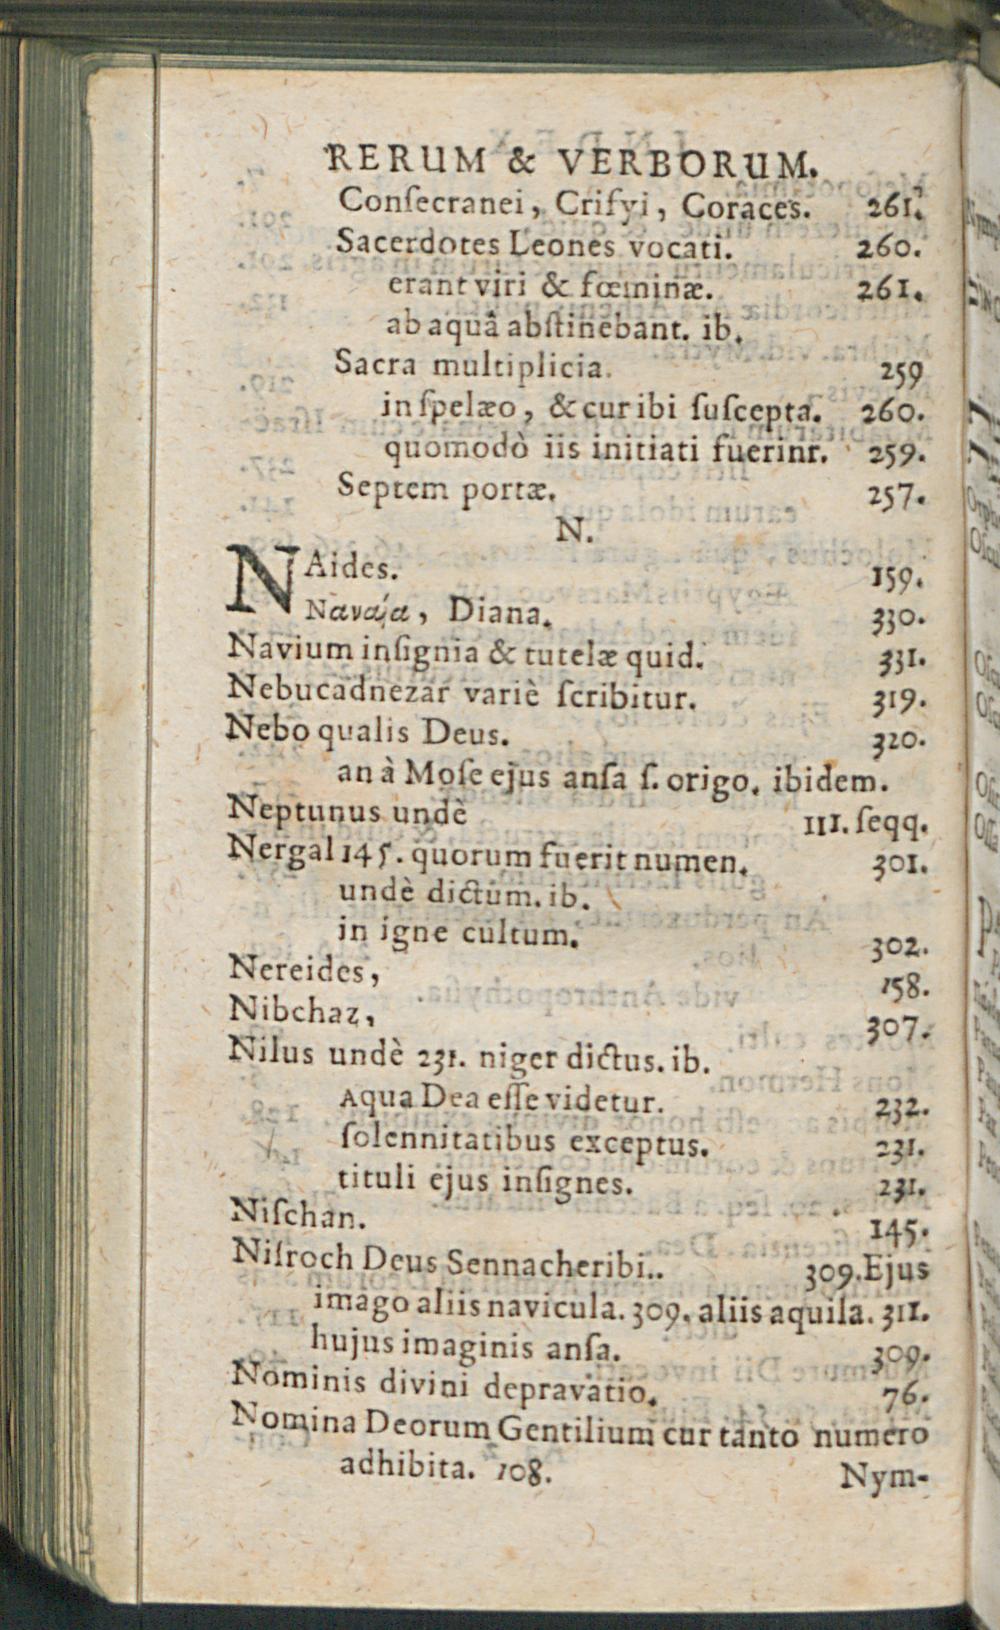 RERUM & VERBORUM.
Conſecranei, Criſyi, Coraces. 261.
Sacerdotes Leones vocati. 260.
erant viri & fœminæ. 261.
ab aquâ abſtinebant. ib.
Sacra multiplicia. 259
in ſpelæo, & cur ibi ſuſcepta. 260.
quomodò iis initiati fuerint. 259.
Septem portæ. 257.
N.
NAides. 159.
Ναναία, Diana. 330.
Navium inſignia & tutelæ quid. 331.
Nebucadnezar variè ſcribitur. 319.
Nebo qualis Deus. 320.
an à Moſe ejus anſa ſ. origo. ibidem.
Neptunus undè 111. ſeqq.
Nergal 145. quorum fuerit numen. 301.
undè dictum. ib.
in igne cultum. 302.
Nereides, 158.
Nibchaz, 307.
Nilus undè 231. niger dictus. ib.
Aqua Dea eſſe videtur. 232.
ſolennitatibus exceptus. 231.
tituli ejus inſignes. 231.
Niſchan. 145.
Niſroch Deus Sennacheribi.. 309. Ejus
imago aliis navicula. 309. aliis aquila. 311.
hujus imaginis anſa. 309.
Nominis divini depravatio. 76.
Nomina Deorum Gentilium cur tanto numero
adhibita. 108. Nym-